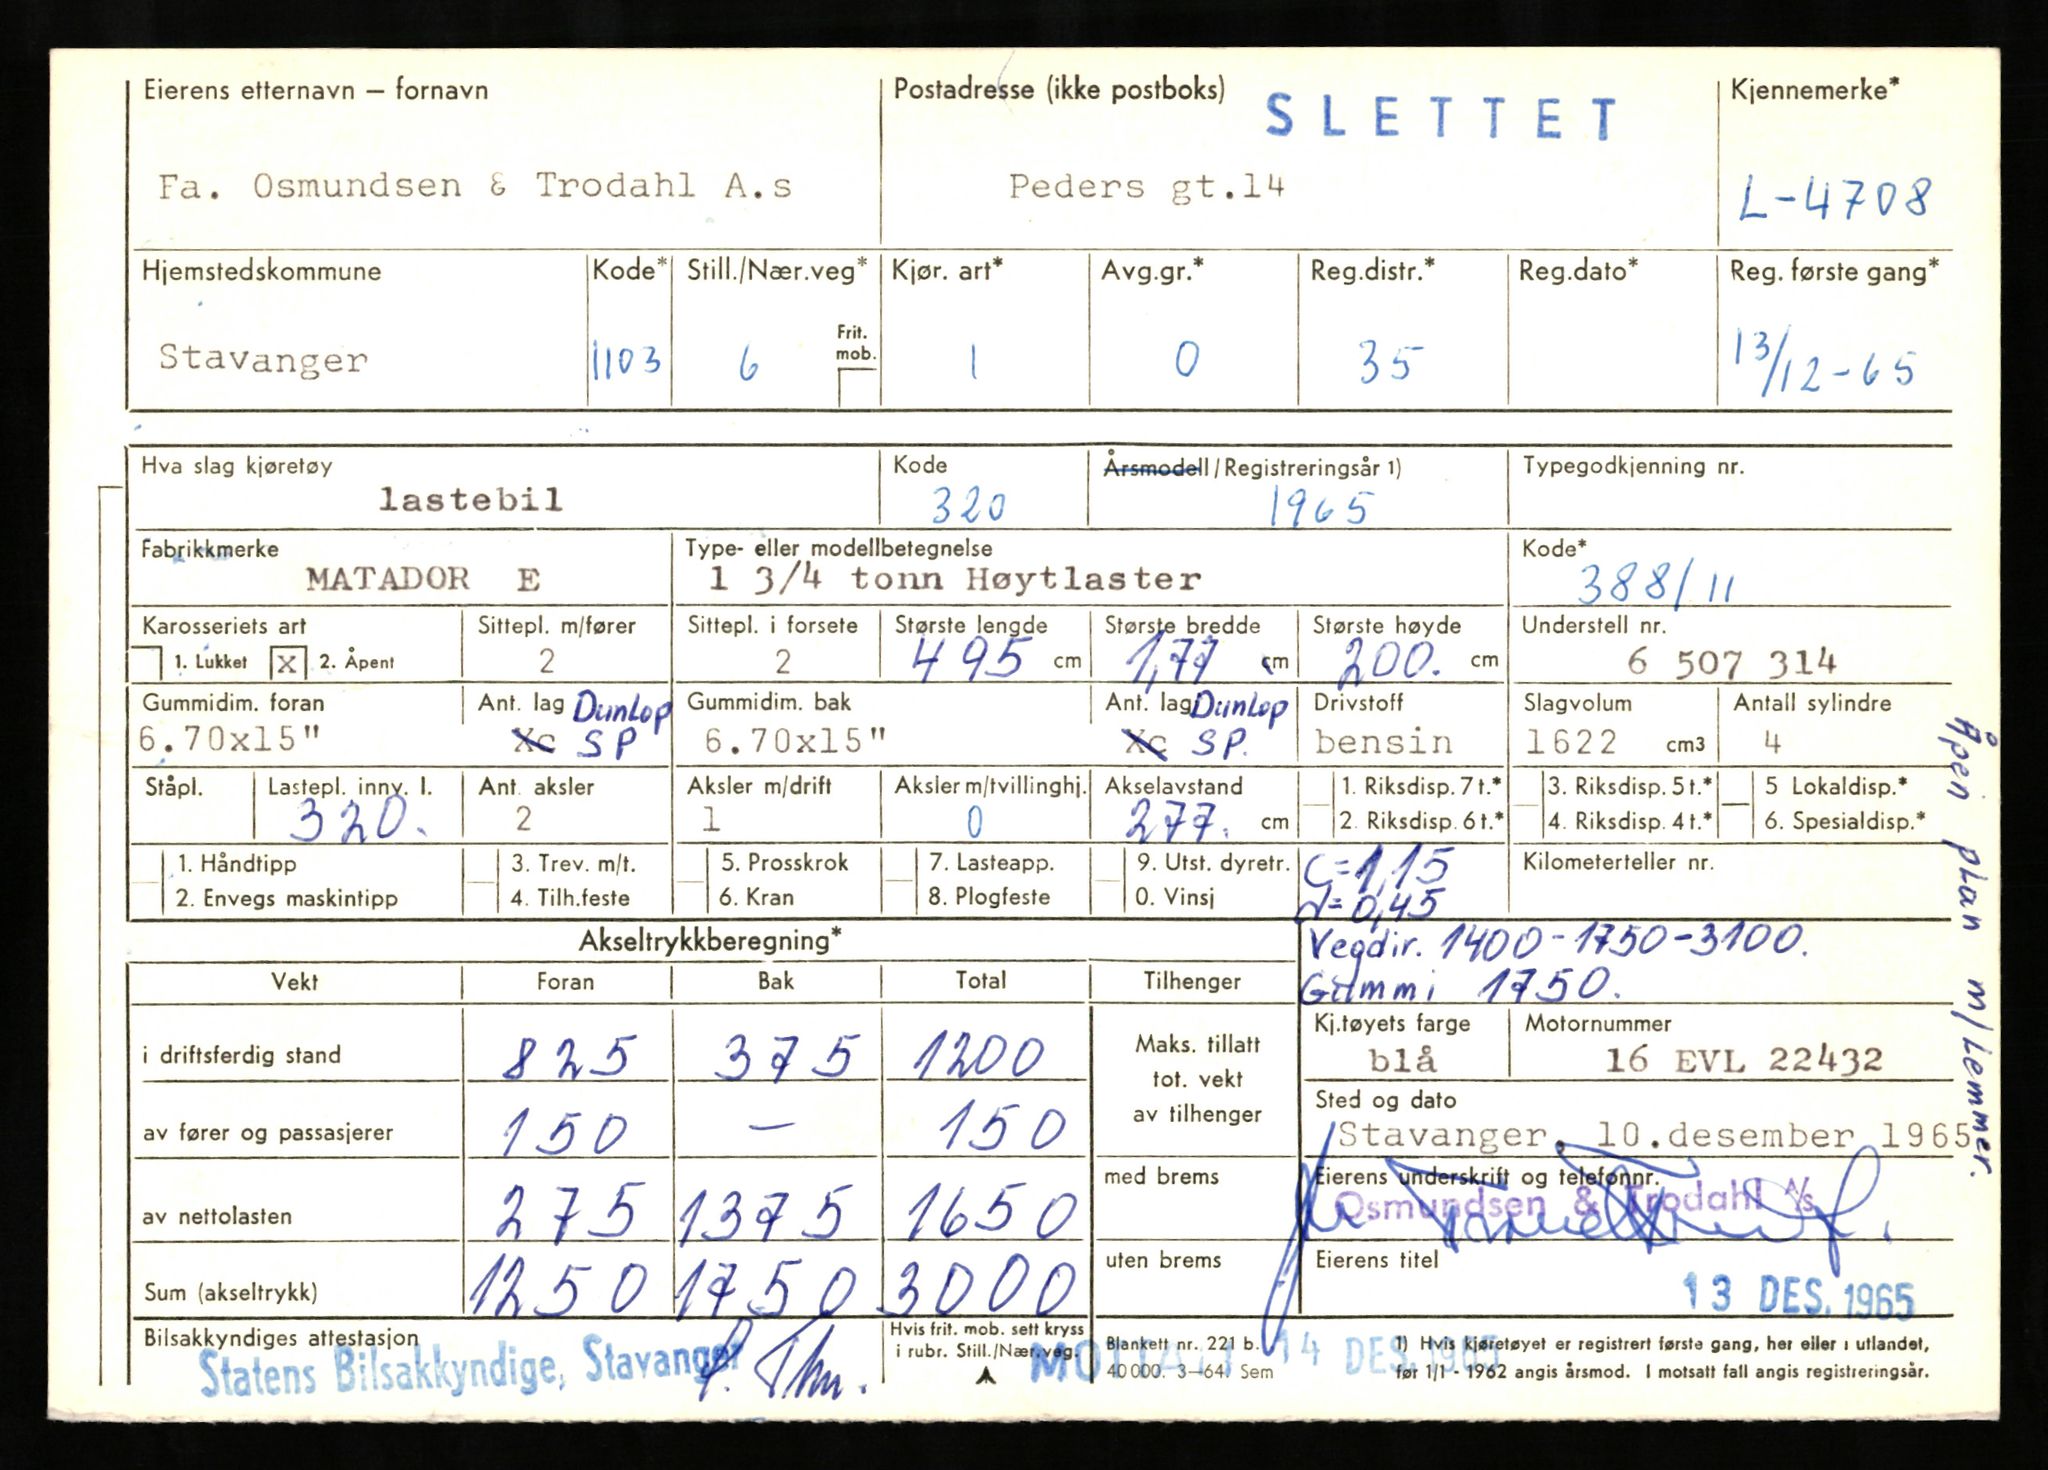 Eierens etternavn — fornavn
Postadresse (ikke postboks)
SLETTET
Kjennemerke*
Fa. Osmundsen & Trodahl A.s
Peders gt.14
L-4708
Hjemstedskommune Kode* Still./Nær.veg* Kjør. art* Avg.gr.* Reg.distr.* Reg.dato* Reg. første gang*
Frit. mob.
Stavanger 1103 6 1 0 35 13/12-65
Hva slag kjøretøy Kode Årsmodell/Registreringsår 1) Typegodkjenning nr.
lastebil 320 1965
Fabrikkmerke Type- eller modellbetegnelse Kode*
MATADOR E 1 3/4 tonn Høytlaster 388/11
Karosseriets art Sittepl. m/fører Sittepl. i forsete Største lengde Største bredde Største høyde Understell nr.
1. Lukket X 2. Åpent 2 2 495 cm 1,77 cm 200. cm 6 507 314
Gummidim. foran Ant. lag Dunlop Gummidim. bak Ant. lag Dunlop Drivstoff Slagvolum Antall sylindre
6.70x15" Xc SP 6.70x15" Xc SP. bensin 1622 cm3 4
Ståpl. Lastepl. innv. l. Ant. aksler Aksler m/drift Aksler m/tvillinghj. Akselavstand 1. Riksdisp. 7 t.* 3. Riksdisp. 5 t.* 5 Lokaldisp.*
320. 2 1 0 277. cm 2. Riksdisp. 6 t.* 4. Riksdisp. 4 t.* 6. Spesialdisp.*
1. Håndtipp 3. Trev. m/t. 5. Prosskrok 7. Lasteapp. 9. Utst. dyretr. C=1,15 Kilometerteller nr.
2. Envegs maskintipp 4. Tilh.feste 6. Kran 8. Plogfeste 0. Vinsj d=0,45
Akseltrykkberegning*
Vegdir. 1400-1750-3100.
Vekt Foran Bak Total Tilhenger
Gummi 1750.
Kj.tøyets farge Motornummer
blå 16 EVL 22432
i driftsferdig stand 825 375 1200
Maks. tillatt
tot. vekt
av tilhenger
Sted og dato
Stavanger, 10.desember 1965
av fører og passasjerer 150 — 150
med brems
Eierens underskrift og telefonnr.
Osmundsen & Trodahl A/s
av nettolasten 275 1375 1650
uten brems
Eierens titel
13 DES. 1965
Sum (akseltrykk) 1250 1750 3000
Bilsakkyndiges attestasjon
Statens Bilsakkyndige, Stavanger
Hvis frit. mob. sett kryss
i rubr. Still./Nær.veg.
MOTTATT 14 DES. 1965
Blankett nr. 221 b.
40 000. 3—64. Sem
1) Hvis kjøretøyet er registrert første gang, her eller i utlandet,
før 1/1 - 1962 angis årsmod. I motsatt fall angis registreringsår.
Åpen plan m/lemmer.